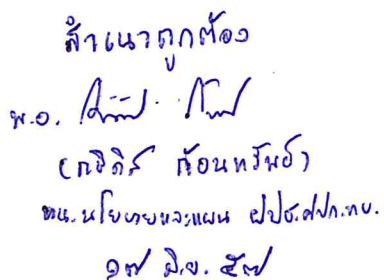 สำเนาถูกต้อง
พ.อ.
ก้อนทรัพย์)
หน.นโยบายและแผน ฝปธ.ศปก.ทบ.
๑๗ มิ.ย. ๕๗